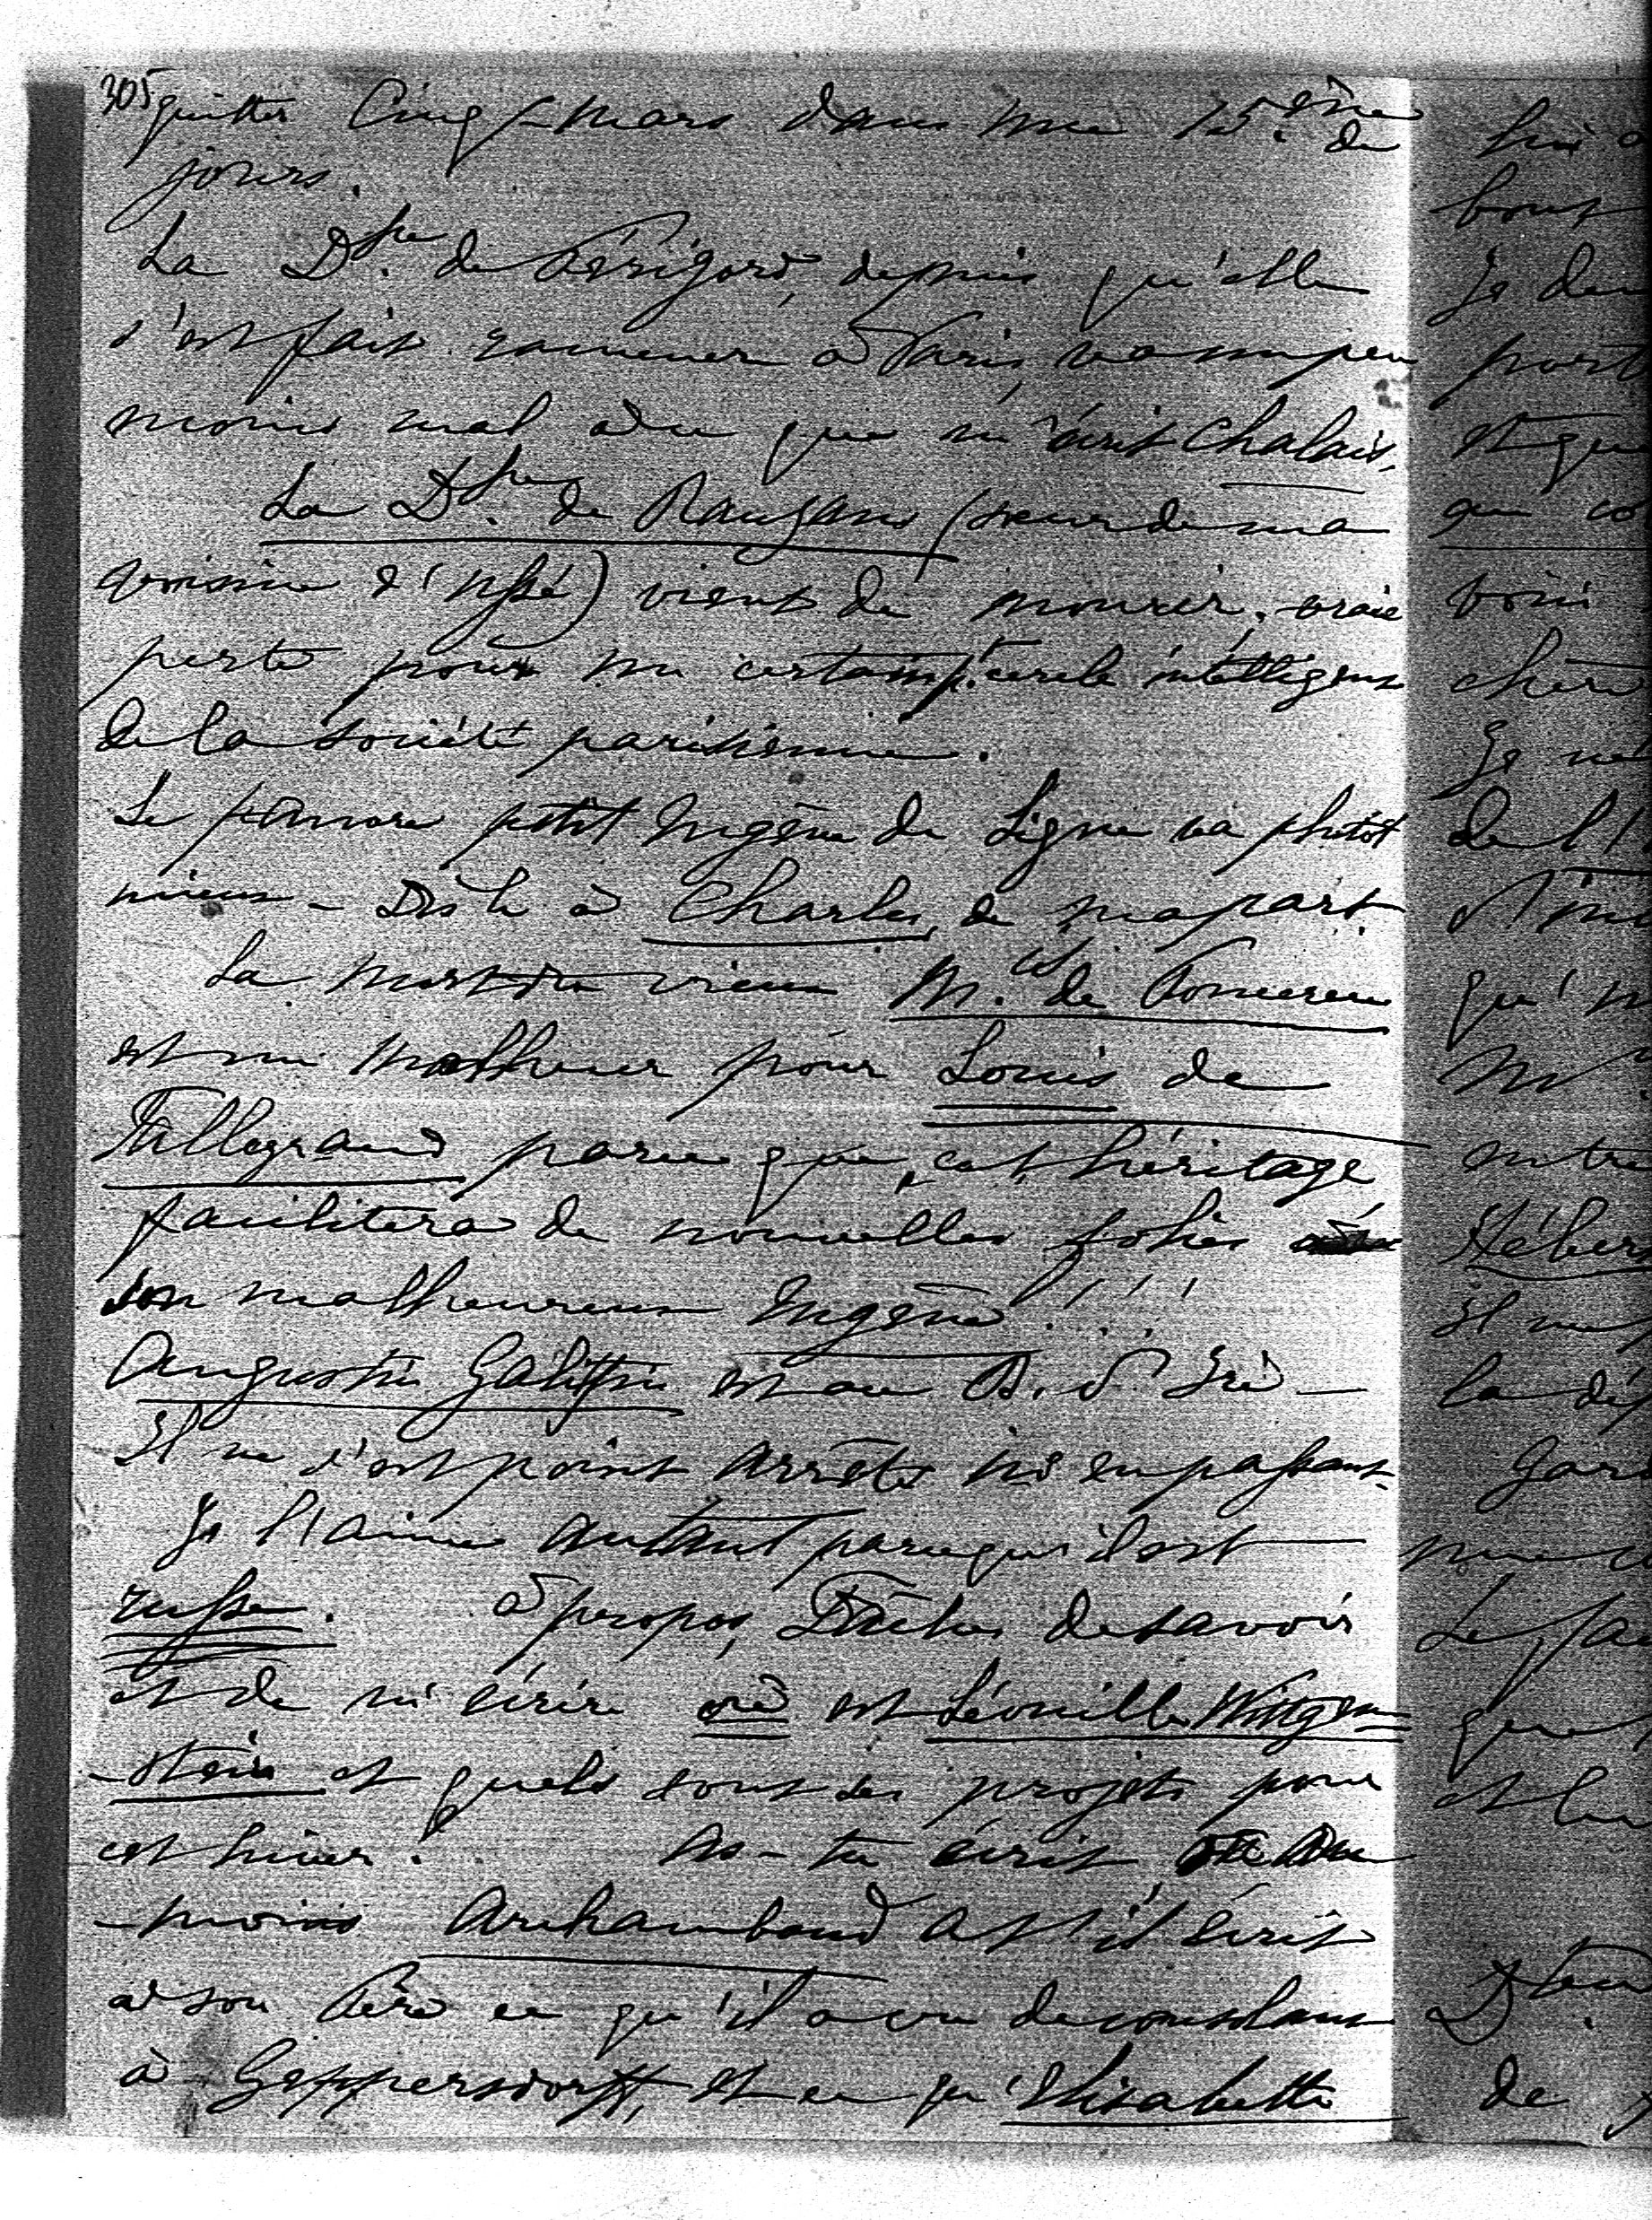 305
quitter Cinq-Mars dans une 15.ène de
jours.
La D.sse de Périgord, depuis qu'elle
s'est fait ramener à Paris, va un peu
moins mal à ce que m'écrit Chalais.
La D.sse de Rauzan (sœur de ma
voisine d'Ussé) vient de mourir. vraie
perte pour un certain cercle intelligent
de la société parisienne.
Le pauvre petit Eugène de Ligne va plutôt
mieux - Dis le à Charles, de ma part.
La mort du vieux M.is de Pomereu
est un malheur pour Louis de
Talleyrand parce que cet héritage
facilitera de nouvelles folies
son malheureux Eugène!!!
Augustin Galitzin est au
Il ne s'est point arrêté ici en passant.
Je l'aime autant parcequ'il est
russe. à propos, Tâches de savoir
et de m'écrire où est Léonille Wittgen-
-stein et quels sont ses projets pour
cet hiver. As-tu écrit ou du
-moins Archambaud a t'il écrit
à son Père ce qu'il a vu de consolant
à Geppersdorff, et ce qu'Elisabeth